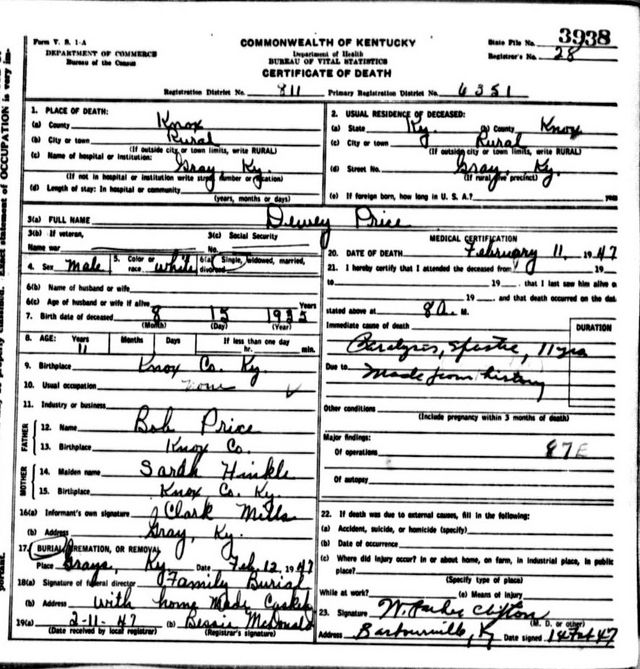 Form V. S. 1-A
DEPARTMENT OF COMMERCE
Bureau of the Census
COMMONWEALTH OF KENTUCKY
Department of Health
BUREAU OF VITAL STATISTICS
CERTIFICATE OF DEATH
State File No. 3938
Registrar's No. 28
Registration District No. 811 Primary Registration District No. 6351
1. PLACE OF DEATH:
(a) County Knox
(b) City or town Rural
(If outside city or town limits, write RURAL)
(c) Name of hospital or institution: Gray, Ky.
(If not in hospital or institution write street number or location)
(d) Length of stay: In hospital or community
(years, months or days)
2. USUAL RESIDENCE OF DECEASED:
(a) State Ky. (b) County Knox
(c) City or town Rural
(If outside city or town limits, write RURAL)
(d) Street No. Gray, Ky.
(If rural give precinct)
(e) If foreign born, how long in U. S. A.? years
3(a) FULL NAME Dewey Price
3(b) If veteran, 3(c) Social Security
Name war No.
4. Sex Male 5. Color or race white 6(a) Single, widowed, married, divorced
6(b) Name of husband or wife
6(c) Age of husband or wife if alive Years
7. Birth date of deceased 8 15 1935
(Month) (Day) (Year)
8. AGE: Years 11 Months Days If less than one day hr. min.
9. Birthplace Knox Co. Ky.
10. Usual occupation none
11. Industry or business
FATHER
12. Name Bob Price
13. Birthplace Knox Co.
MOTHER
14. Maiden name Sarah Hinkle
15. Birthplace Knox Co. Ky.
16(a) Informant's own signature Clark Mills
(b) Address Gray, Ky.
17. BURIAL, CREMATION, OR REMOVAL
Place Grays, Ky Date Feb. 12, 1947
18(a) Signature of funeral director Family Burial
(b) Address with home made Casket
19(a) 2-11-47 (b) Bessie McDonald
(Date received by local registrar) (Registrar's signature)
MEDICAL CERTIFICATION
20. DATE OF DEATH February 11, 1947
21. I hereby certify that I attended the deceased from 19
to 19 , that I last saw him alive on
19 , and that death occurred on the date
stated above at 8 A. M.
Immediate cause of death DURATION
Paralysis, spastic, 11 yrs
Due to Made from history
Other conditions
(Include pregnancy within 3 months of death)
Major findings:
Of operations 87E
Of autopsy
22. If death was due to external causes, fill in the following:
(a) Accident, suicide, or homicide (specify)
(b) Date of occurrence
(c) Where did injury occur? In or about home, on farm, in industrial place, in public
place?
(Specify type of place)
While at work? (e) Means of injury
23. Signature W. Parker Clifton
(M. D. or other)
Address Barbourville, Ky Date signed 14 Feb 47